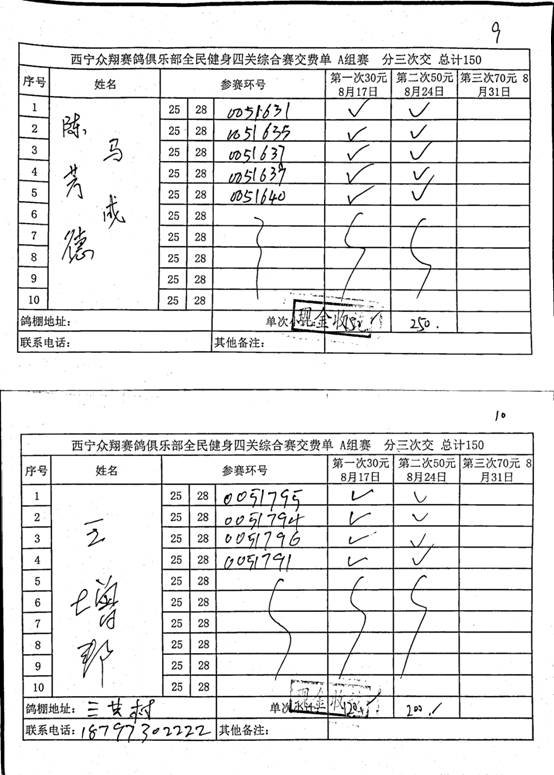 9
西宁众翔赛鸽俱乐部全民健身四关综合赛交费单 A组赛 分三次交 总计150
序号 姓名 参赛环号 第一次30元 8月17日 第二次50元 8月24日 第三次70元 8月31日
陈芳德 马成
1 25 28 0051631 ✓ ✓
2 25 28 0051635 ✓ ✓
3 25 28 0051637 ✓ ✓
4 25 28 ✓ ✓
5 25 28 0051640 ✓ ✓
6 25 28
7 25 28
8 25 28
9 25 28
10 25 28
鸽棚地址: 单次小 现金收 150 250.
联系电话: 其他备注:
10
西宁众翔赛鸽俱乐部全民健身四关综合赛交费单 A组赛 分三次交 总计150
序号 姓名 参赛环号 第一次30元 8月17日 第二次50元 8月24日 第三次70元 8月31日
1 25 28 0051795 ✓ ✓
2 25 28 0051794 ✓ ✓
3 25 28 0051796 ✓ ✓
4 25 28 0051791 ✓ ✓
5 25 28
6 25 28
7 25 28
8 25 28
9 25 28
10 25 28
鸽棚地址: 三其村 单次 现金收 120 200.
联系电话: 18797302222 其他备注: